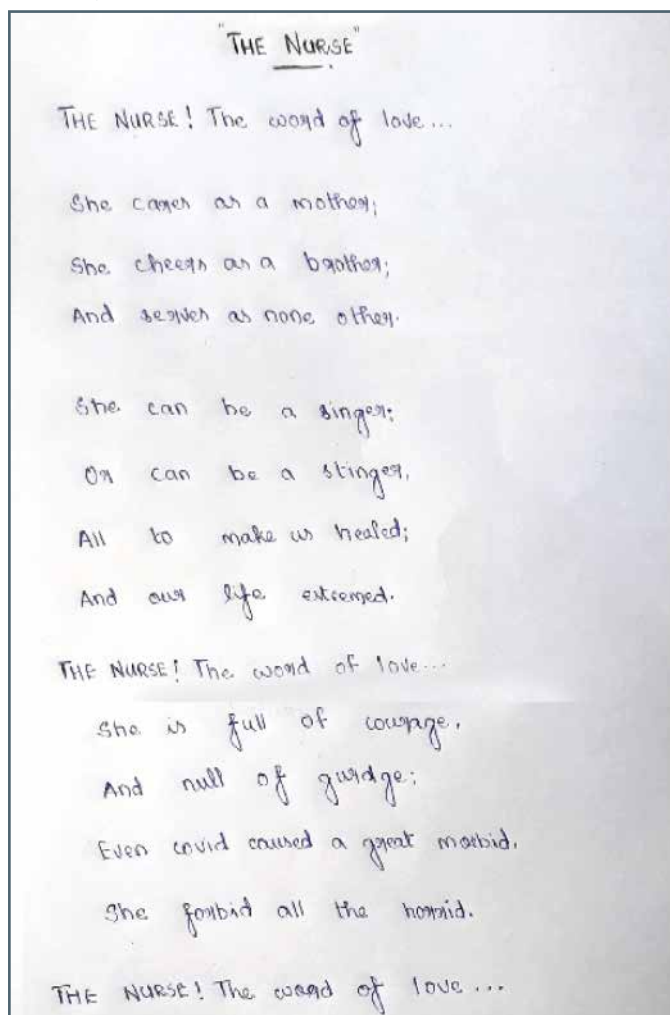 "THE NURSE"
THE NURSE! The word of love...
She cares as a mother;
She cheers as a brother;
And serves as none other.
She can be a singer;
Or can be a stinger,
All to make us healed;
And our life esteemed.
THE NURSE! The word of love...
She is full of courage,
And null of gurdge;
Even covid caused a great morbid,
She forbid all the horrid.
THE NURSE! The word of love...